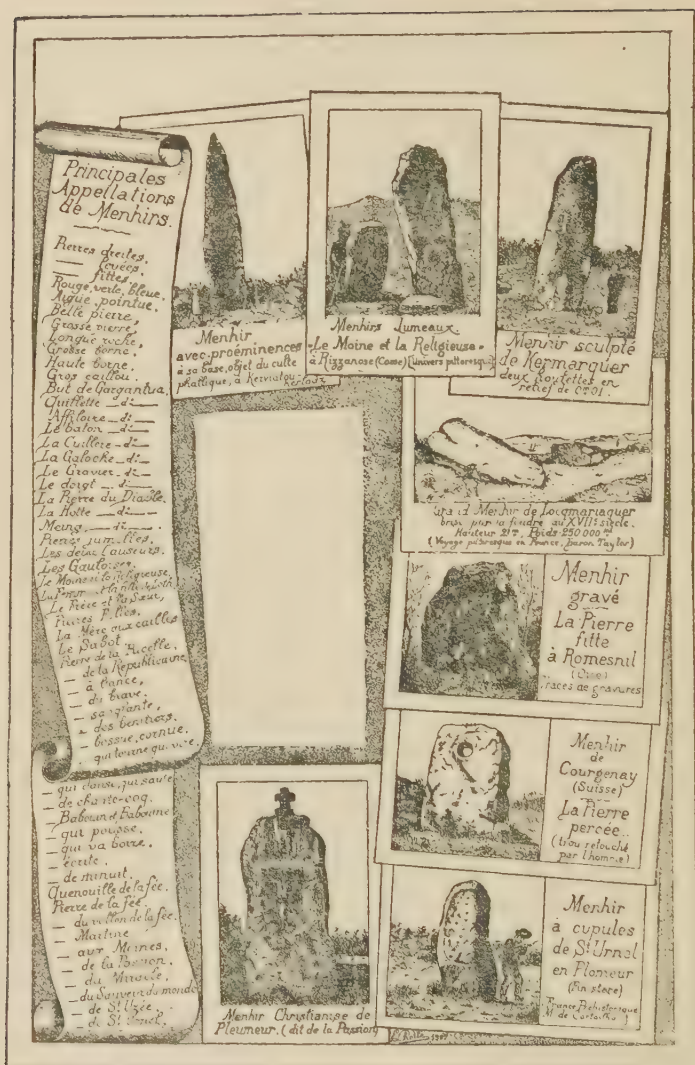 Principales
Appellations
de Menhirs.
Pierres droites.
— levées.
— fittes.
Rouge, verte, bleue.
Aigue, pointue.
Belle pierre,
Grosse pierre,
Longue roche,
Grosse borne.
Haute borne.
Gros caillou.
But de Gargantua.
Quillette — di —
Affiloire — di —
Le baton — di —
La Cuillere — di —
La Galoche — di —
Le Gravier — di —
Le doigt — di —
La Pierre du Diable.
La Hotte — di —
Meing — di —
Pierres jumelles.
Les deux Causeurs.
Les Gauloises.
Le Moine et la religieuse
La Femme
Le Frère et la Sœur,
Pierres Folles.
La Mère aux cailles
Le Sabot.
Pierre de la
— de la Républicaine
— à
— du brave.
— sanglante,
— des benitiers.
— bossue, cornue.
— qui tourne, qui vire.
— qui danse, qui saute
— de chante-coq.
— Babouin et Baboune
— qui pousse.
— qui va boire.
— écrite.
— de minuit.
Quenouille de la fée.
Pierre de la fée.
— du vallon de la fée.
— Martine
— aux Moines.
— de la Passion.
— du Miracle.
— du Sauveur du monde
— de St
— de St Urnel.
Menhir
avec proéminences
à sa base, objet du culte
phallique, à
Menhirs Jumeaux.
"Le Moine et la Religieuse"
à Rizzanose (Corse) (Univers pittoresque)
Menhir sculpté
de Kermarquer
deux houlettes en
relief de
Grand Menhir de Locmariaquer
brisé par la foudre au XVIIe siècle.
Hauteur 21m, Poids 250.000
(Voyage pittoresque en France, baron Taylor)
Menhir
gravé
La Pierre
fitte
à Romesnil
(Oise)
traces de gravures
Menhir
de
Courgenay
(Suisse)
La Pierre
percée..
(trou retouché
par l'homme)
Menhir
à cupules
de St Urnel
en Plomeur
(Finistere)
France Préhistorique
M. de Cartailhac
Menhir Christianisé de
Pleumeur. (dit de la Passion)